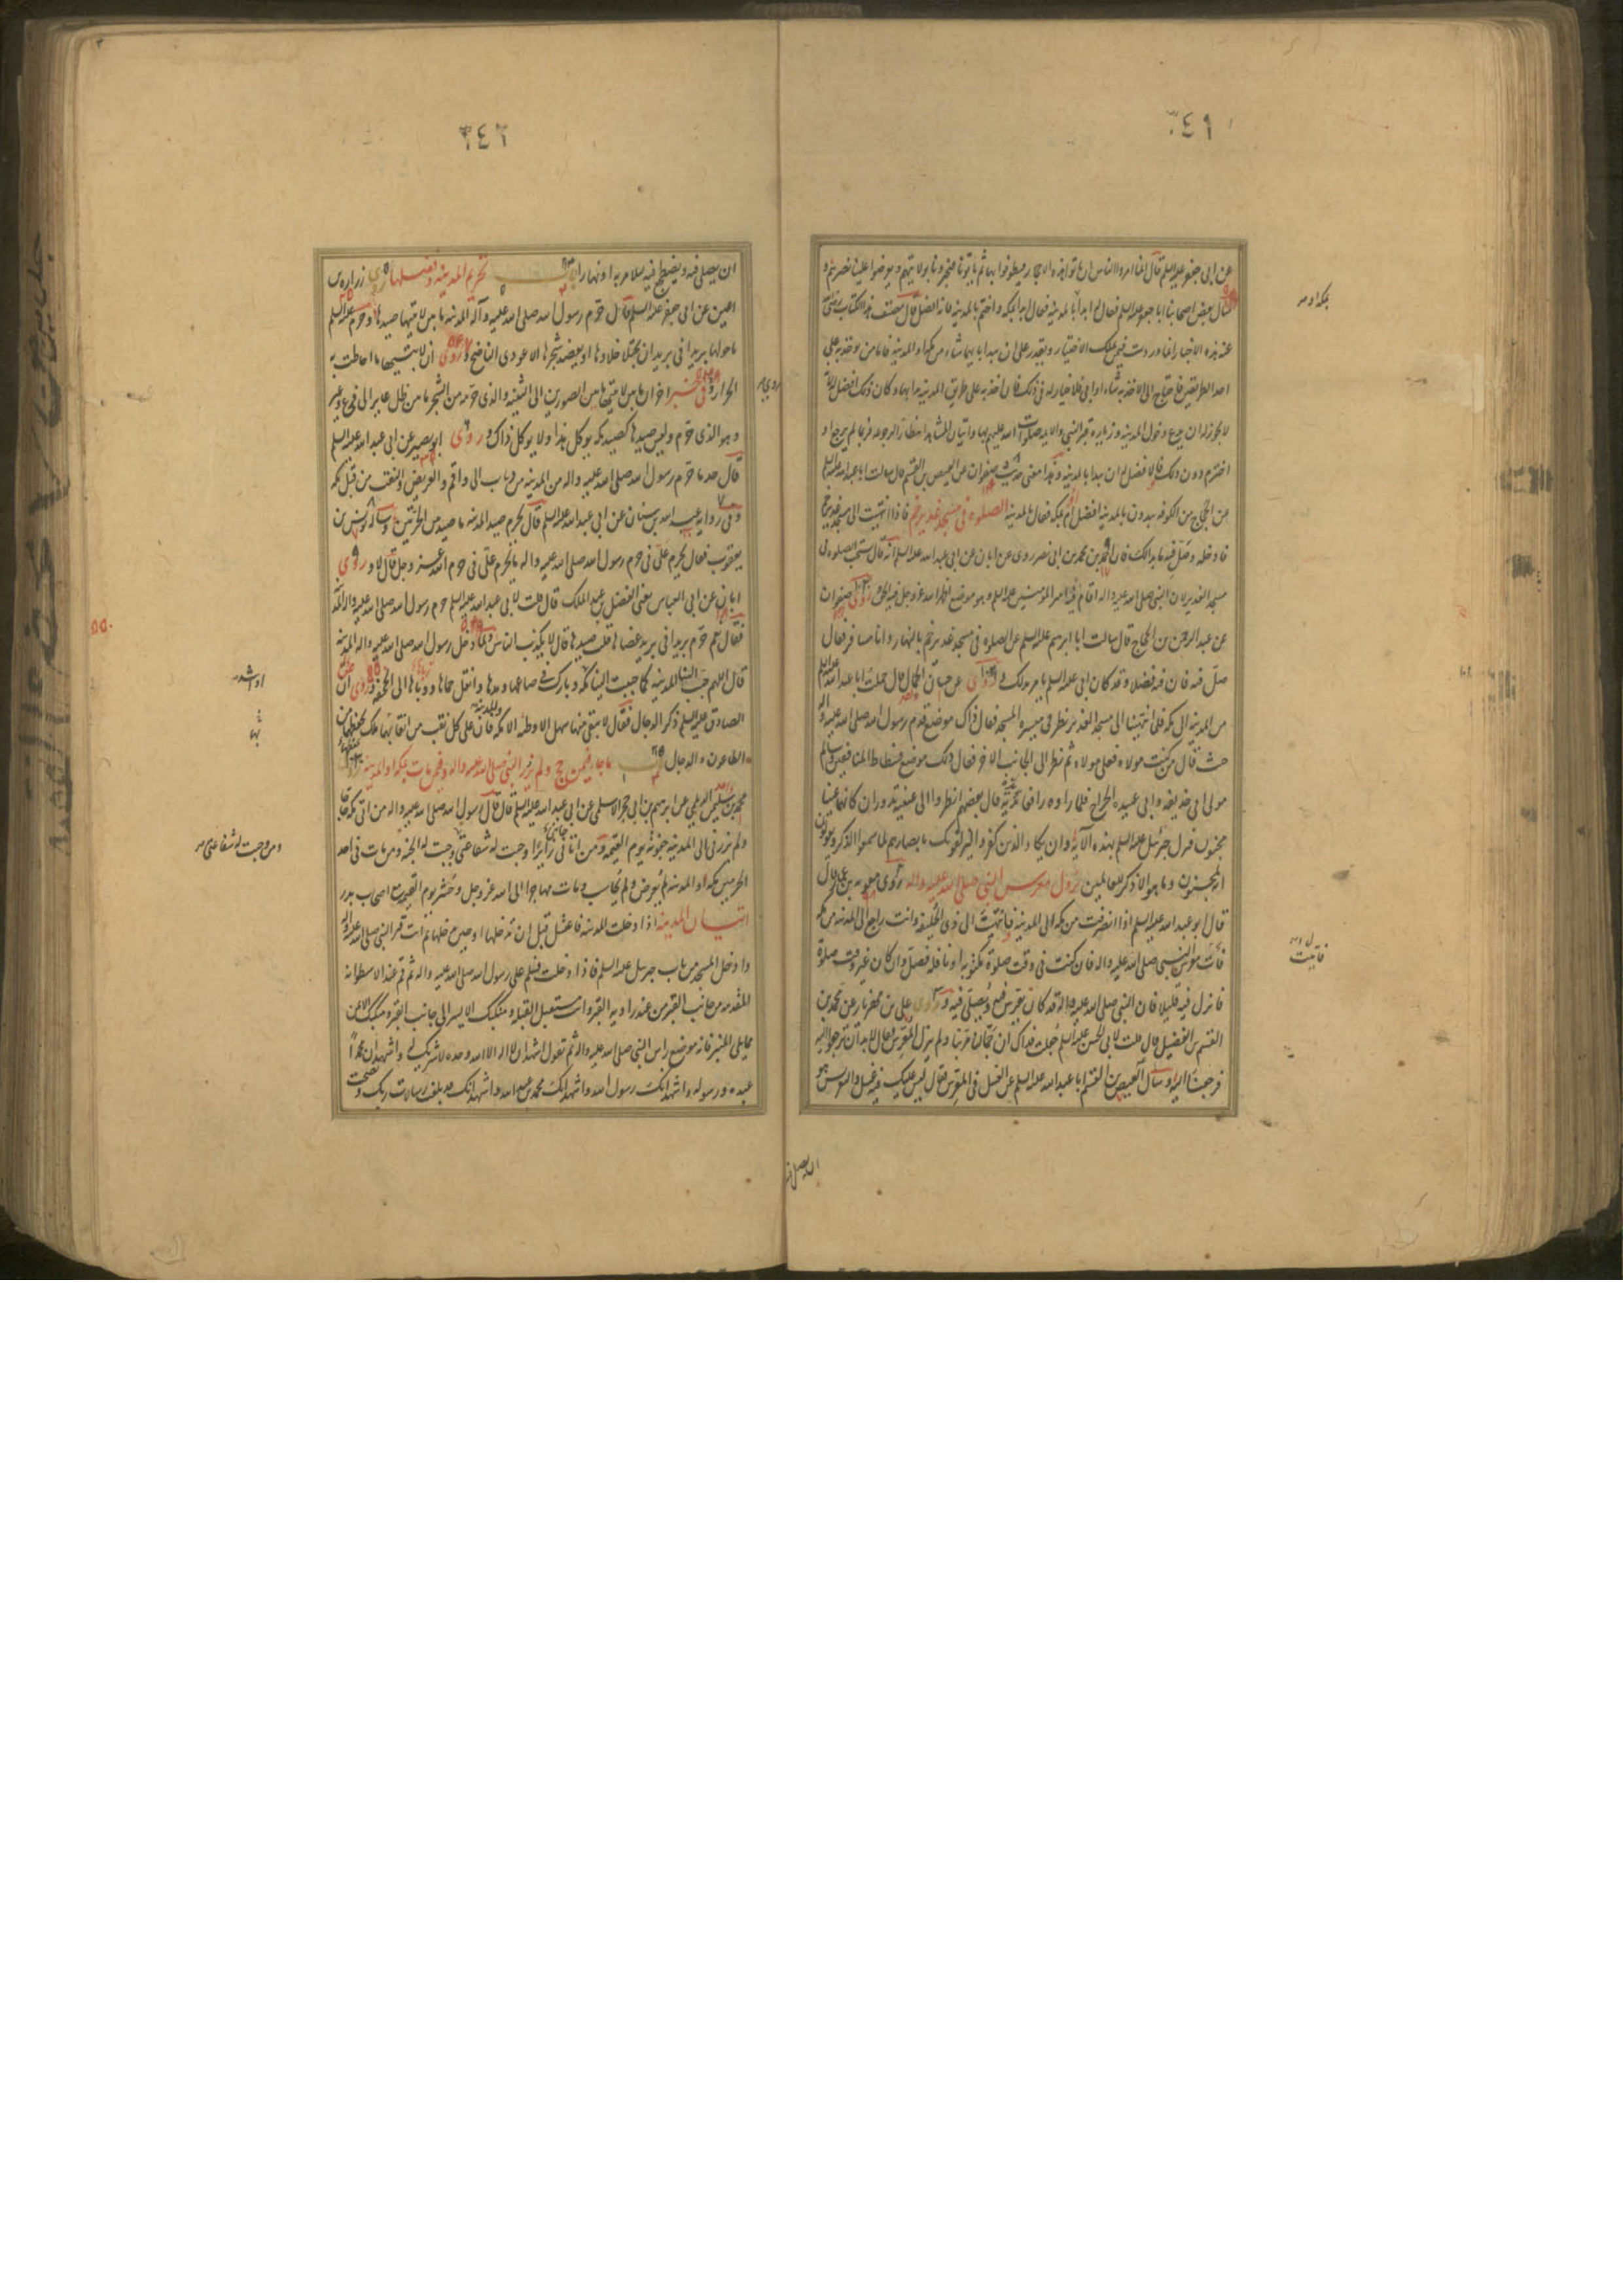 ٣٤١
عن ابی جعفر علیه السلم قال انما امروا الناس ان یاتوا هذه الاحجار فیطوفوا بها ثم یاتونا فیخبرونا بولایتهم ویعرضوا علینا نصرهم و
سال بعض اصحابنا ابا جعفر علیه السلم فقال ابدأ بالمدینه او بمکه فقال ابدأ بمکه واختم بالمدینه فانه افضل قال مصنف هذا الکتاب رضی
عنه هذه الاخبار انما وردت فیمن یملک الاختیار ویقدر علی ان یبدأ بایهما شاء من مکه او المدینه فاما من یوخذ به علی
احد الطریقین فاحتاج الی الاخذ به شاء او ابی فلا خیار له فی ذلک فان اخذ به علی طریق المدینه بدأ بها وکان ذلک افضل له لانه
لا یجوز له ان یدع دخول المدینه وزیاره قبر النبی والائمه صلوات الله علیهم بها واتیان المشاهد انتظارا للرجوع فربما لم یرجع او
اخترم دون ذلک والافضل له ان یبدأ بالمدینه وهذا معنی حدیث صفوان عن العیص بن القسم قال سالت ابا عبد الله علیه السلم
عن الحجاج من الکوفه یبدؤن بالمدینه افضل ام بمکه فقال بالمدینه الصلوه فی مسجد غدیر خم فاذا انتهیت الی مسجد غدیر خم
فادخله وصل فیه ما بدا لک فان احمد بن محمد بن ابی نصر روی عن ابان عن ابی عبد الله علیه السلم انه قال تستحب الصلوه فی
مسجد الغدیر لان النبی صلی الله علیه واله اقام فیه امیر المؤمنین علیه السلم وهو موضع اظهر الله عز وجل فیه الحق وروی صفوان
عن عبد الرحمن بن الحجاج قال سالت ابا ابرهیم علیه السلم عن الصلوه فی مسجد غدیر خم بالنهار وانا مسافر فقال
صل فیه فان فیه فضلا وقد کان ابی علیه السلم یامر بذلک وروی عن حسان الجمال قال حملت ابا عبد الله علیه السلم
من المدینه الی مکه فلما انتهینا الی مسجد الغدیر نظر فی میسره المسجد فقال ذاک موضع قدم رسول الله صلی الله علیه واله
حیث قال من کنت مولاه فعلی مولاه ثم نظر الی الجانب الاخر فقال ذلک موضع فسطاط المنافقین وسالم
مولی ابی حذیفه وابی عبیده الجراح فلما راوه رافعا یدیه قال بعضهم انظروا الی عینیه تدوران کانهما عینا
مجنون فنزل جبرئیل علیه السلم بهذه الآیه وان یکاد الذین کفروا لیزلقونک بابصارهم لما سمعوا الذکر ویقولون
انه لمجنون وما هو الا ذکر للعالمین نزول معرس النبی صلی الله علیه واله روی معویه بن عمار قال
قال ابو عبد الله علیه السلم اذا انصرفت من مکه الی المدینه فانتهیت الی ذی الحلیفه وانت راجع الی المدینه من مکه
فأت معرس النبی صلی الله علیه واله فان کنت فی وقت صلوة مکتوبه او نافله فصل وان کان غیر وقت صلوة
فانزل فیه قلیلا فان النبی صلی الله علیه واله قد کان یعرس فیه ویصلی فیه وروی علی بن مهزیار عن محمد بن
القسم بن الفضیل قال قلت لابی الحسن علیه السلم جعلت فداک ان جمالنا مر بنا ولم ینزل المعرس فقال لا بد ان ترجعوا الیه
فرجعنا الیه وسال العیص بن القسم ابا عبد الله علیه السلم عن الغسل فی المعرس فقال لیس علیک فیه غسل والتعریس هو
فاتیت
ان یصلی فیه
٣٤٢
ان یصلی فیه ویضطجع فیه لیلا مر به او نهارا باب تحریم المدینه وفضلها روی زراره بن
اعین عن ابی جعفر علیه السلم قال حرم رسول الله صلی الله علیه وآله المدینه ما بین لابتیها صیدها وحرم علیه السلم
ما حولها بریدا فی برید ان یختلا خلاؤها او یعضد شجرها الا عودی الناضح وروی ان لابتیها ما احاطت به
الحرار وفی خبر اخر ان ما بین لابتیها ما بین الصورین الی الثنیه والذی حرمه من الشجر ما بین ظل عایر الی فیء وعیر
وهو الذی حرم ولیس صیدها کصید مکه یوکل هذا ولا یوکل ذاک وروی ابو بصیر عن ابی عبد الله علیه السلم
قال حد ما حرم رسول الله صلی الله علیه واله من المدینه من ذباب الی واقم والعریض والنقب من قبل مکه
وفی روایه عبد الله بن سنان عن ابی عبد الله علیه السلم قال یحرم من صید المدینه ما صید بین الحرتین وساله یونس بن
یعقوب فقال یحرم علی فی حرم رسول الله صلی الله علیه واله ما یحرم علی فی حرم الله عز وجل قال لا وروی
ابان عن ابی العباس یعنی الفضل بن عبد الملک قال قلت لابی عبد الله علیه السلم حرم رسول الله صلی الله علیه واله المدینه
فقال نعم حرم بریدا فی برید عضاها قلت صیدها قال لا یکذب الناس ولما دخل رسول الله صلی الله علیه واله المدینه
قال اللهم حبب الینا المدینه کما حببت الینا مکه وبارک فی صاعها ومدها وانقل حماها ووباها الی الجحفه وروی ان
الصادق علیه السلم ذکر الدجال فقال لا یبقی منها سهل الا وطئه الا مکه والمدینه فان علی کل نقب من انقابهما ملک یحفظهما من
الطاعون والدجال باب ما جاء فیمن حج ولم یزر النبی صلی الله علیه واله وفیمن مات بمکه او المدینه روی
محمد بن سلیمن الدیلمی عن ابرهیم بن ابی حجر الاسلمی عن ابی عبد الله علیه السلم قال قال رسول الله صلی الله علیه واله من اتی مکه حاجا
ولم یزرنی الی المدینه جفوته یوم القیمه ومن اتانی زایرا وجبت له شفاعتی وجبت له الجنه ومن مات فی احد
الحرمین مکه او المدینه لم یعرض ولم یحاسب ومات مهاجرا الی الله عز وجل وحشر یوم القیمه مع اصحاب بدر
اتیان المدینه اذا دخلت المدینه فاغتسل قبل ان تدخلها او حین تدخلها ثم ائت قبر النبی صلی الله علیه واله
وادخل المسجد من باب جبرئیل علیه السلم فاذا دخلت فسلم علی رسول الله صلی الله علیه واله ثم قم عند الاسطوانه
المقدمه من جانب القبر من عند زاویه القبر وانت مستقبل القبله ومنکبک الایسر الی جانب القبر ومنکبک الایمن
مما یلی المنبر فانه موضع راس النبی صلی الله علیه واله ثم تقول اشهد ان لا اله الا الله وحده لا شریک له واشهد ان محمدا
عبده ورسوله واشهد انک رسول الله واشهد انک محمد بن عبد الله واشهد انک قد بلغت رسالات ربک ونصحت
ومن وجبت له شفاعتی